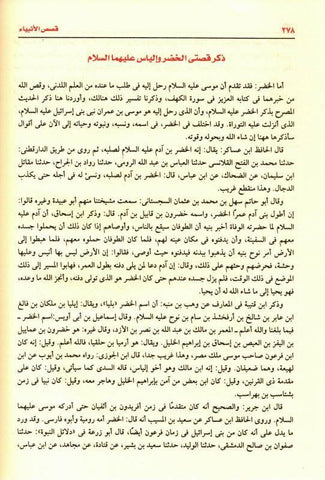 ٢٧٨
قصص الأنبياء
ذكر قصتى الخضر وإلياس عليهما السلام
أما الخضر: فقد تقدم أن موسى عليه السلام رحل إليه فى طلب ما عنده من العلم اللدنى، وقص الله
من خبرهما فى كتابه العزيز فى سورة الكهف، وذكرنا تفسير ذلك هنالك، وأوردنا هنا ذكر الحديث
المصرح بذكر الخضر عليه السلام، وأن الذى رحل إليه هو موسى بن عمران نبى بنى إسرائيل عليه السلام،
الذى أنزلت عليه التوراة. وقد اختلف فى الخضر، فى اسمه، ونسبه، ونبوته وحياته إلى الآن على أقوال
سأذكرها ههنا إن شاء الله وبحوله وقوته.
قال الحافظ ابن عساكر: يقال: إنه الخضر بن آدم عليه السلام لصلبه، ثم روى من طريق الدارقطنى:
حدثنا محمد بن الفتح القلانسى حدثنا العباس بن عبد الله الرومى، حدثنا رواد بن الجراح، حدثنا مقاتل
ابن سليمان، عن الضحاك، عن ابن عباس، قال: الخضر بن آدم لصلبه، ونسئ له فى أجله حتى يكذب
الدجال. وهذا منقطع غريب.
وقال أبو حاتم سهل بن محمد بن عثمان السجستانى: سمعت مشيختنا منهم أبو عبيدة وغيره قالوا:
إن أطول بنى آدم عمرًا الخضر، واسمه خضرون بن قابيل بن آدم. قال: وذكر ابن إسحاق، أن آدم عليه
السلام لما حضرته الوفاة أخبر بنيه أن الطوفان سيقع بالناس، وأوصاهم إذا كان ذلك أن يحملوا جسده
معهم فى السفينة، وأن يدفنوه فى مكان عينه لهم، فلما كان الطوفان حملوه معهم، فلما هبطوا إلى
الأرض أمر نوح بنيه أن يذهبوا ببدنه فيدفنوه حيث أوصى، فقالوا: إن الأرض ليس بها أنيس وعليها
وحشة، فحرضهم وحثهم على ذلك، وقال: إن آدم دعا لمن يلى دفنه بطول العمر، فهابوا المسير إلى ذلك
الموضع فى ذلك الوقت، فلم يزل جسده عندهم حتى كان الخضر هو الذى تولى دفنه، وأنجز الله ما وعده،
فهو يحيا إلى ما شاء الله له أن يحيا.
وذكر ابن قتيبة فى المعارف عن وهب بن منبه: أن اسم الخضر «بليا»، ويقال: إيليا بن ملكان بن فالغ
ابن عابر بن شالخ بن أرفخشذ بن سام بن نوح عليه السلام. وقال إسماعيل بن أبى أويس: اسم الخضر ـ
فيما بلغنا والله أعلم ـ المعمر بن مالك بن عبد الله بن نصر بن الأزد، وقال غيره: هو خضرون بن عمياييل
بن اليفز بن العيص بن إسحاق بن إبراهيم الخليل. ويقال: هو أرميا بن حلقيا، فالله أعلم. وقيل: إنه كان
ابن فرعون صاحب موسى ملك مصر، وهذا غريب جدا، قال ابن الجوزى: رواه محمد بن أيوب عن ابن
لهيعة، وهما ضعيفان. وقيل: إنه ابن مالك وهو أخو إلياس، قاله السدى كما سيأتى، وقيل: كان على
مقدمة ذى القرنين، وقيل: كان ابن بعض من آمن بإبراهيم الخليل وهاجر معه، وقيل: كان نبيا فى زمن
بشتاسب بن بهراسب.
قال ابن جرير: والصحيح أنه كان متقدمًا فى زمن أفريدون بن أثفيان حتى أدركه موسى عليهما
السلام. وروى الحافظ ابن عساكر عن سعيد بن المسيب أنه قال: الخضر أمه رومية وأبوه فارسى. وقد ورد
ما يدل على أنه كان من بنى إسرائيل فى زمان فرعون أيضًا، قال أبو زرعة فى «دلائل النبوة»: حدثنا
صفوان بن صالح الدمشقى، حدثنا الوليد، حدثنا سعيد بن بشير، عن قتادة، عن مجاهد، عن ابن عباس،